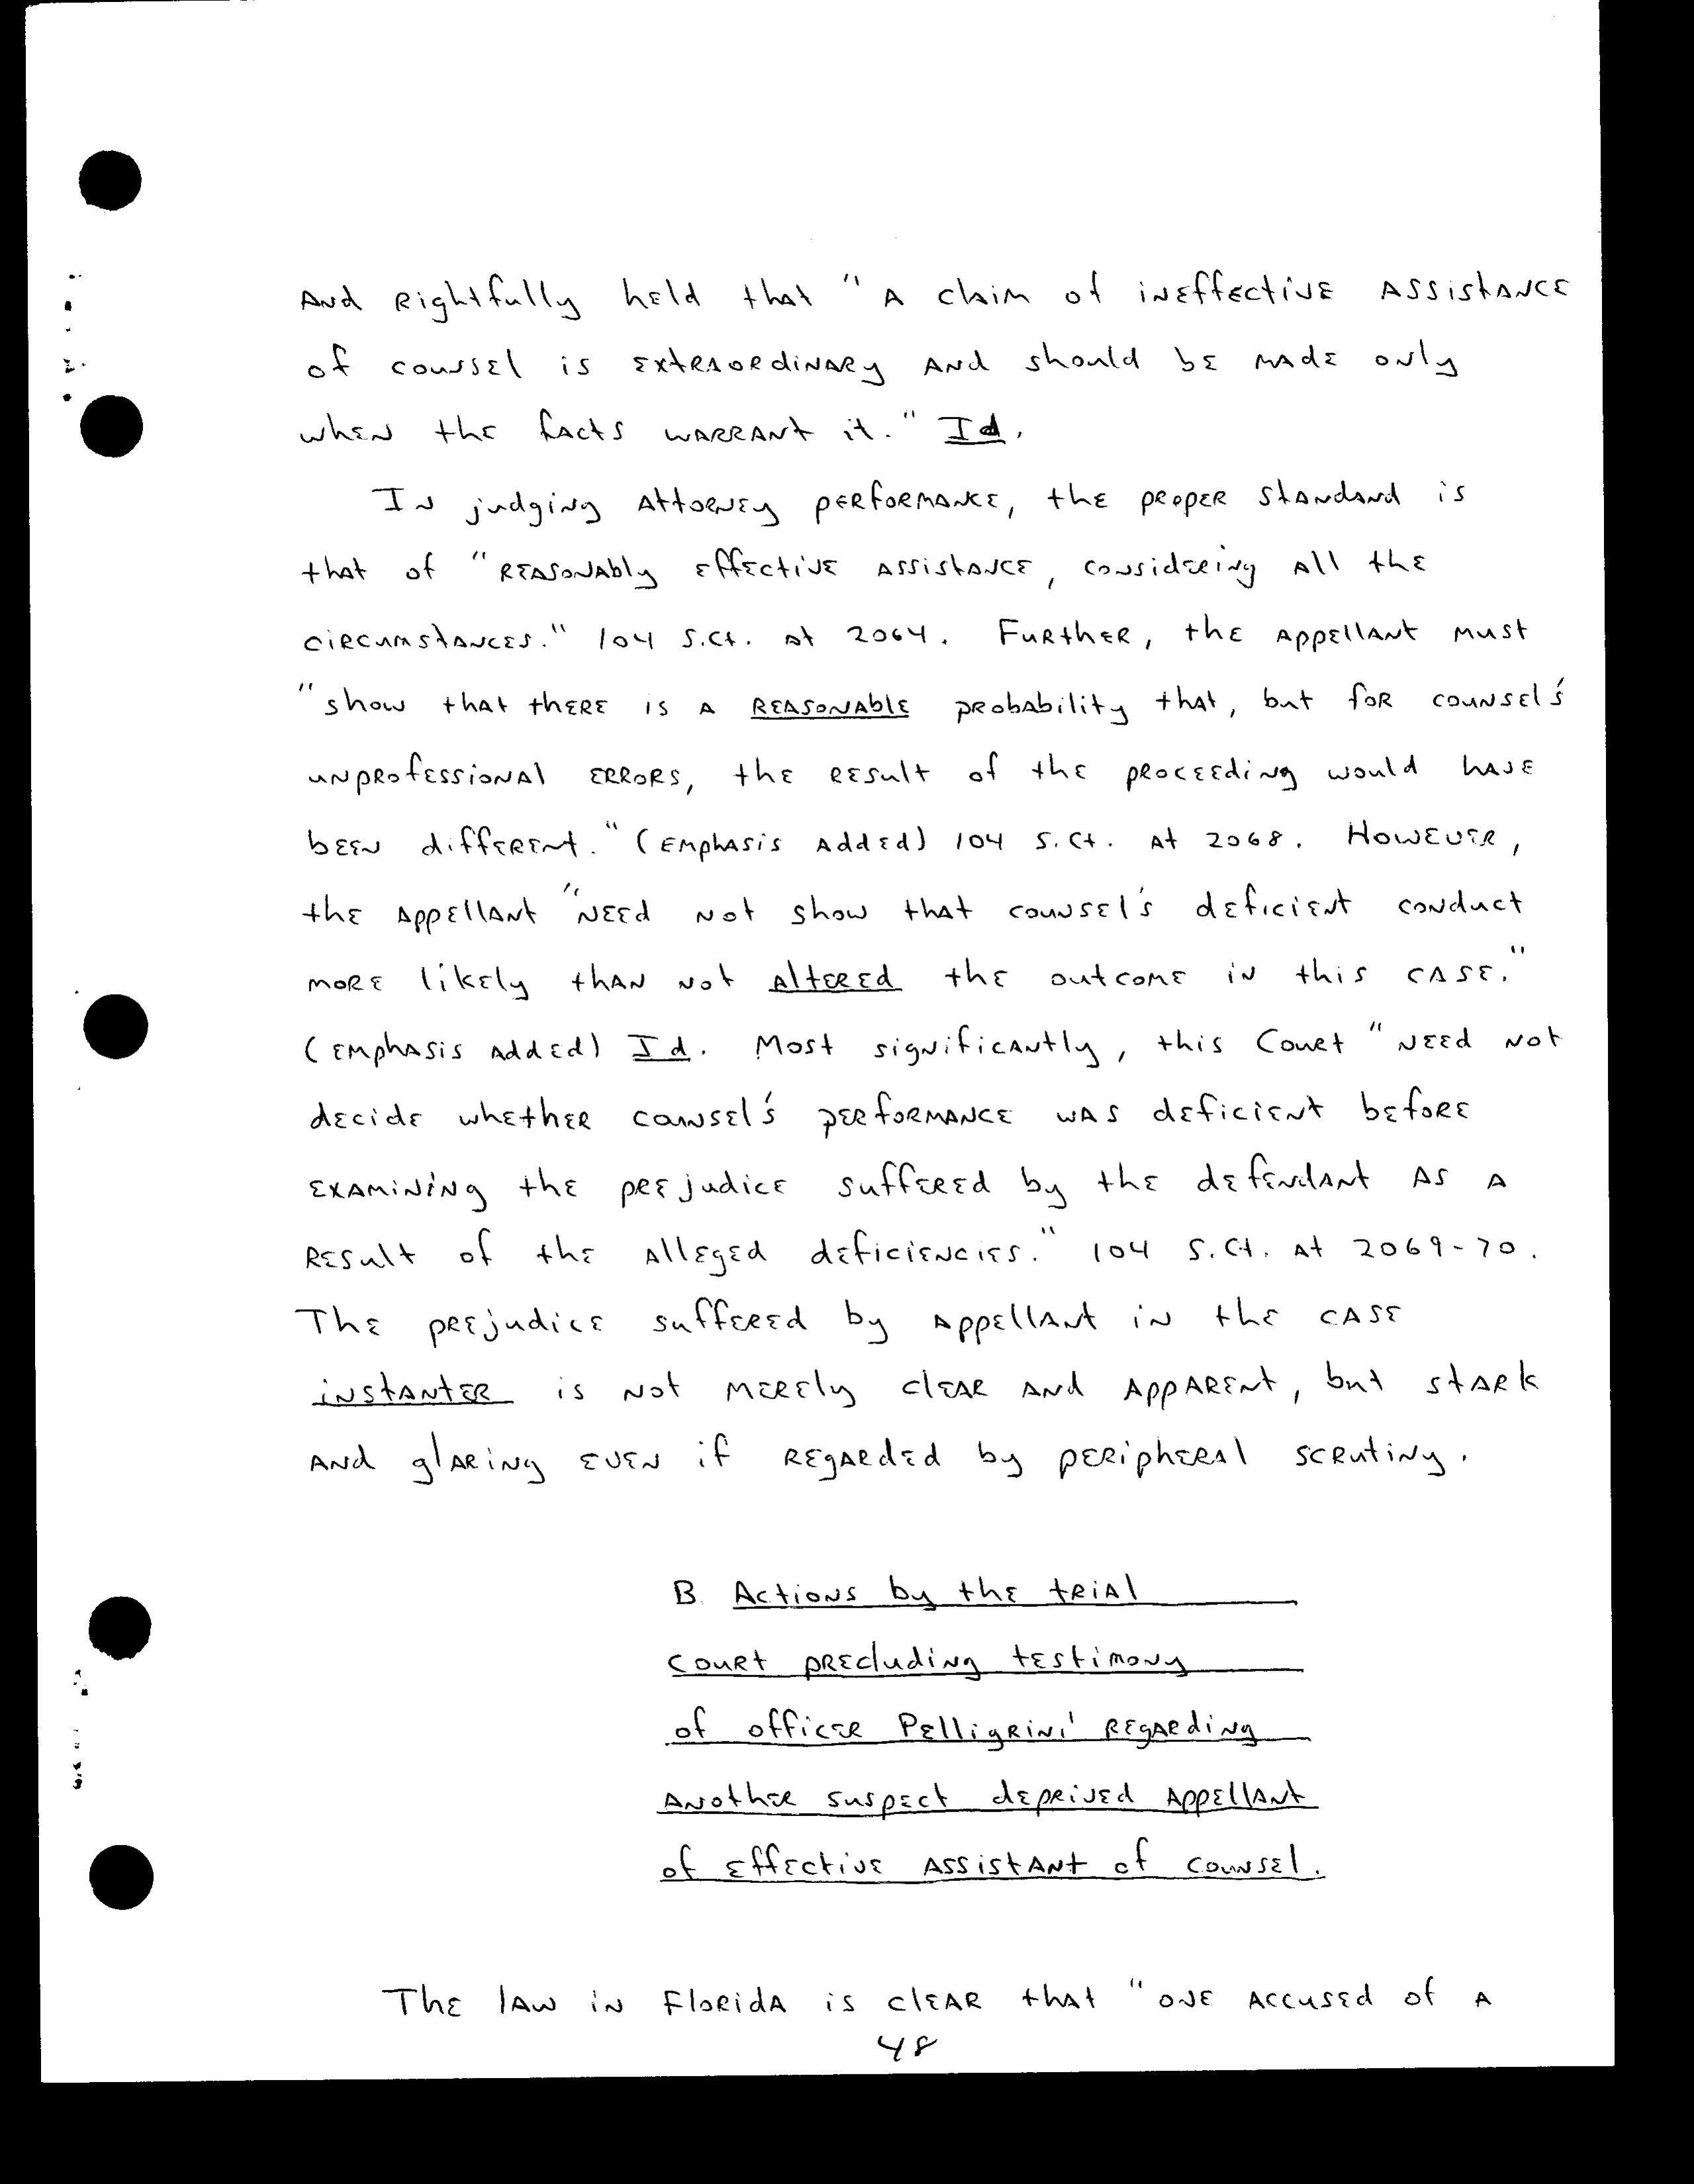 And rightfully held that "a claim of ineffective assistance
of counsel is extraordinary and should be made only
when the facts warrant it." Id.
In judging attorney performance, the proper standard is
that of "reasonably effective assistance, considering all the
circumstances." 104 S.Ct. at 2064. Further, the appellant must
"show that there is a reasonable probability that, but for counsel's
unprofessional errors, the result of the proceeding would have
been different." (Emphasis added) 104 S.Ct. at 2068. However,
the appellant "need not show that counsel's deficient conduct
more likely than not altered the outcome in this case."
(Emphasis added) Id. Most significantly, this Court "need not
decide whether counsel's performance was deficient before
examining the prejudice suffered by the defendant as a
result of the alleged deficiencies." 104 S.Ct. at 2069-70.
The prejudice suffered by appellant in the case
instanter is not merely clear and apparent, but stark
and glaring even if regarded by peripheral scrutiny.
B. Actions by the trial
court precluding testimony
of officer Pelligrini' regarding
another suspect deprived appellant
of effective assistant of counsel.
The law in Florida is clear that "one accused of a
48